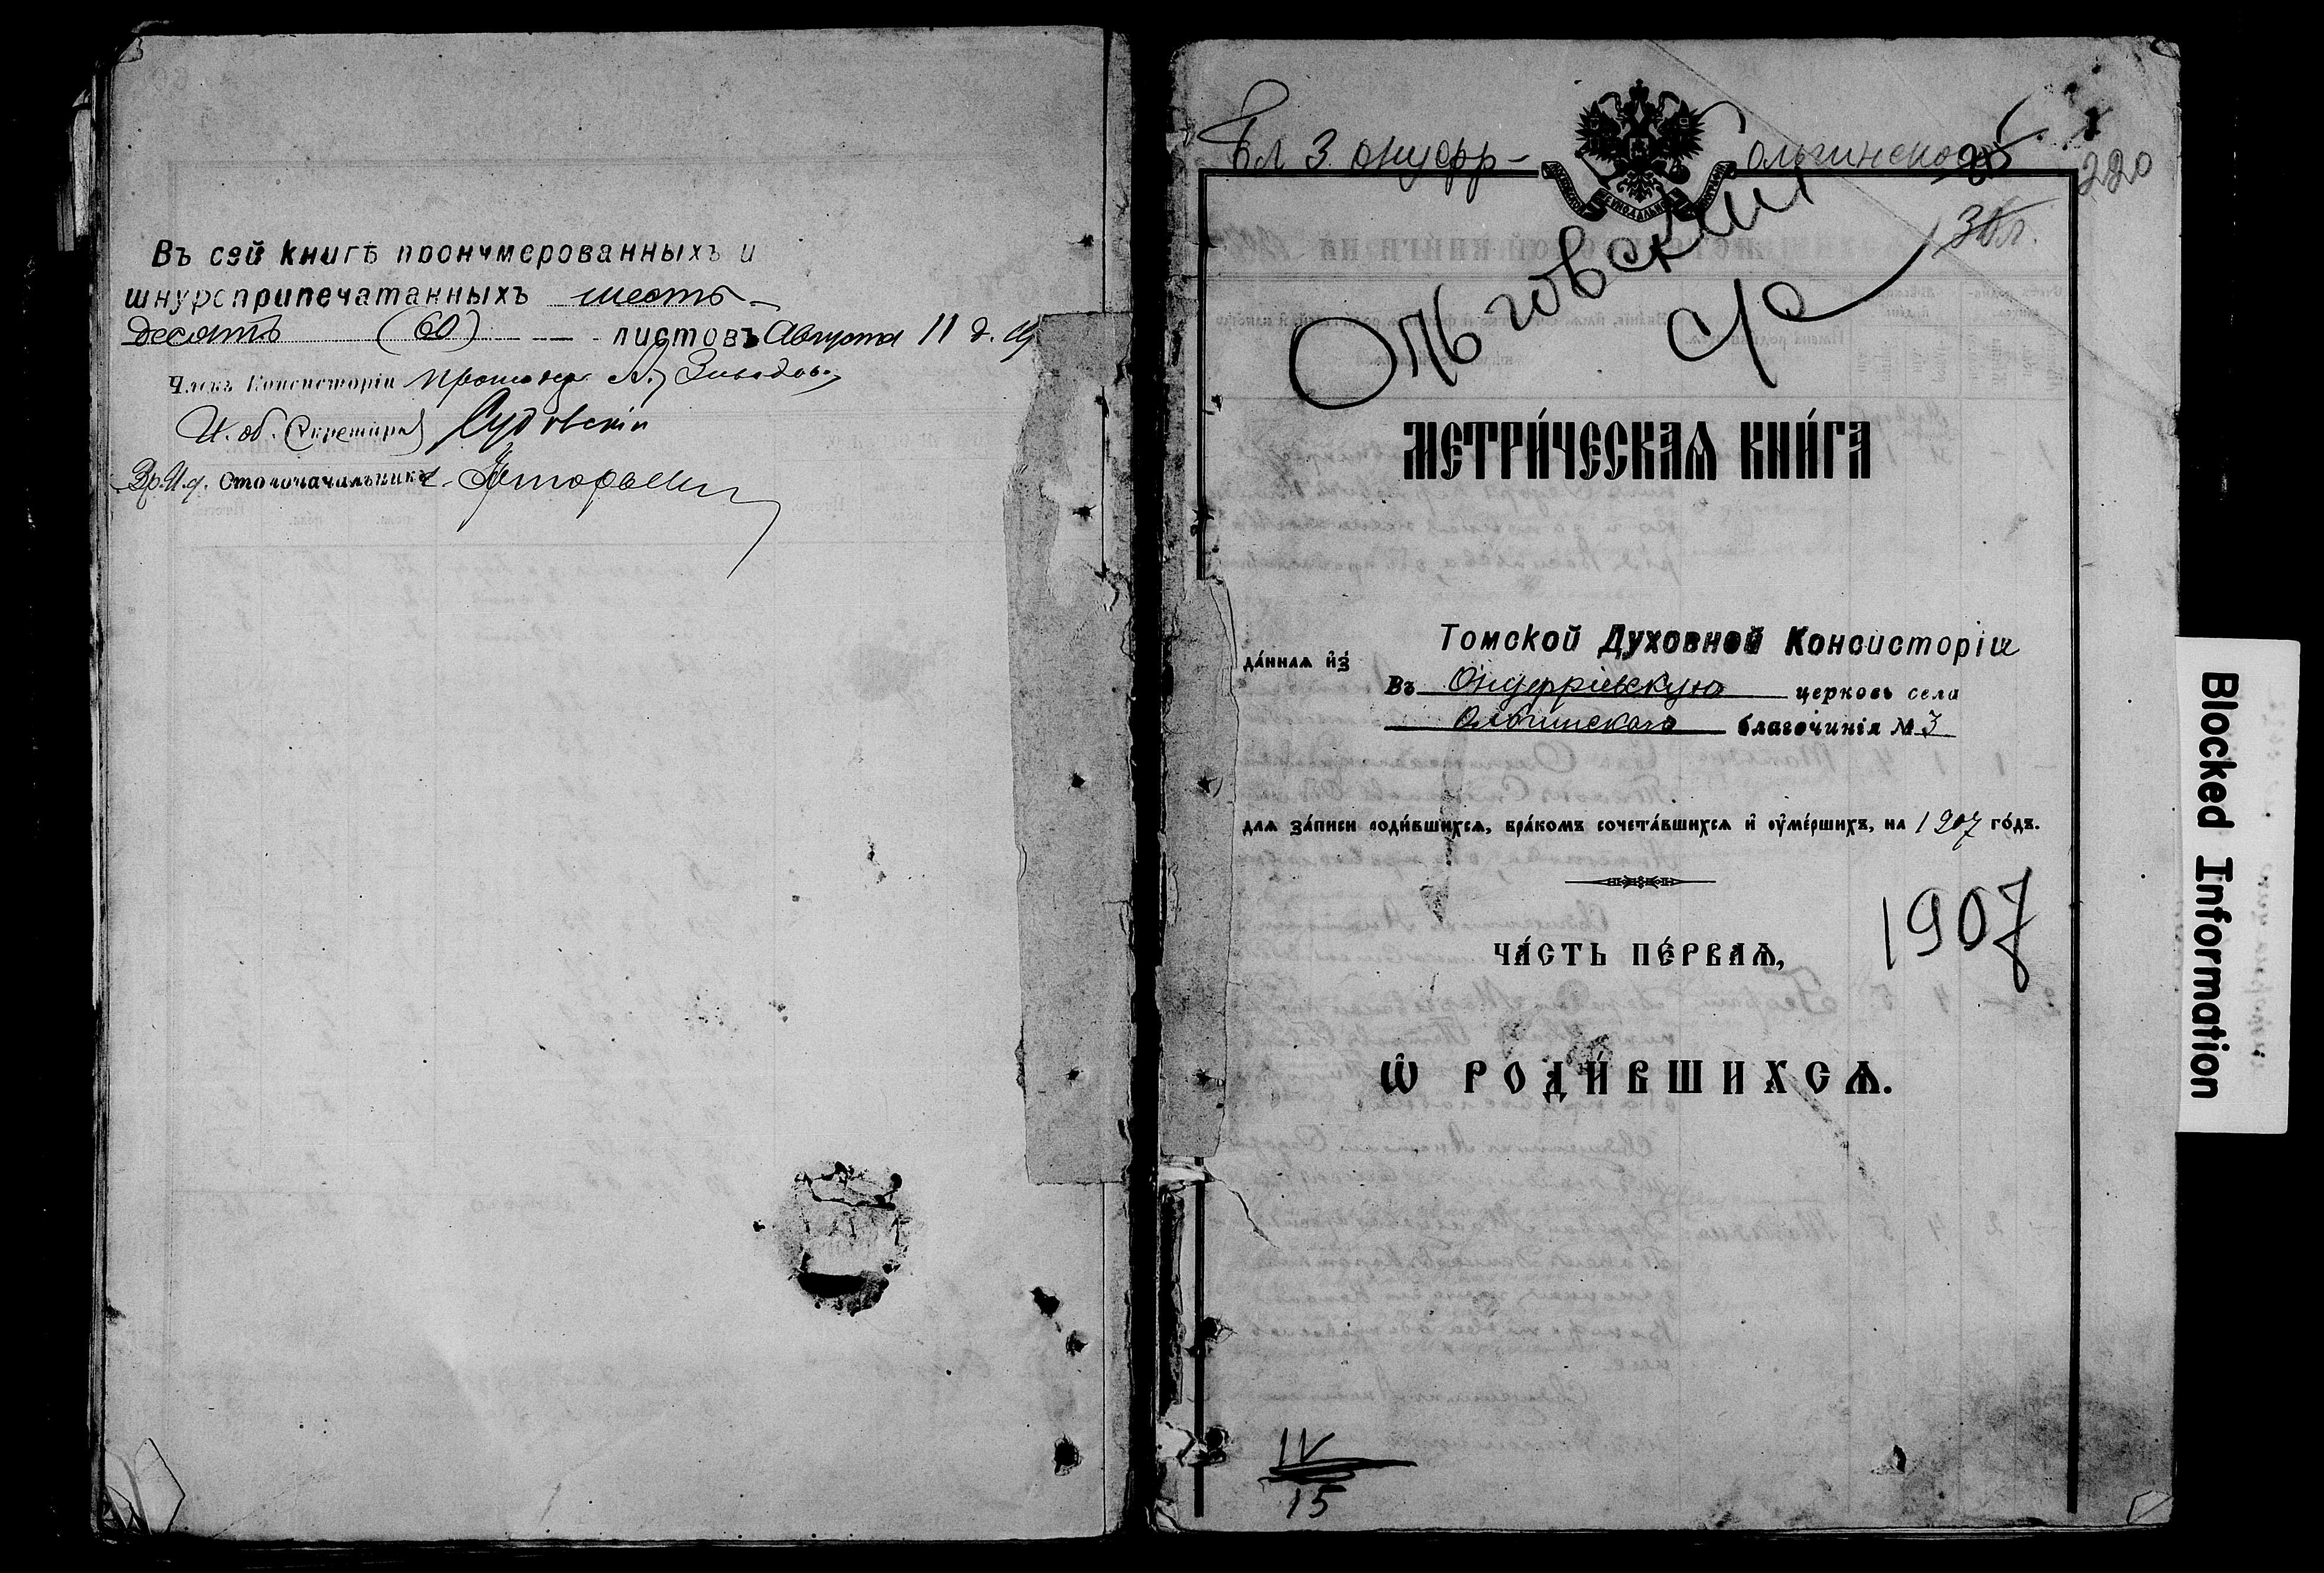 Въ сей книгѣ пронумерованныхъ и
шнуроприпечатанныхъ шесть-
десятъ (60) листовъ Августа 11 д. 19
Членъ Консисторіи протоіерей А. Завадов
И. об. Секретаря
Вр. И. д. Столоначальника
Бл 3 онуфр- ольгинское
25
220
30л.
Ольговский
с/с
МЕТРИ́ЧЕСКАѦ КНИ́ГА
да́ннаѧ и҆зъ Томской Духовной Консисторіи
Въ Онуфріевскую церковь села
Ольгинскаго благочинія № 3
для за́писи роди́вшихсѧ, бра́комъ сочета́вшихсѧ и҆ ᲂу҆ме́ршихъ, на 1907 го́дъ.
1907
ЧА́СТЬ ПЕ́РВАѦ,
Ѡ҆ РОДИ́ВШИХСѦ.
IV
15
Blocked Information